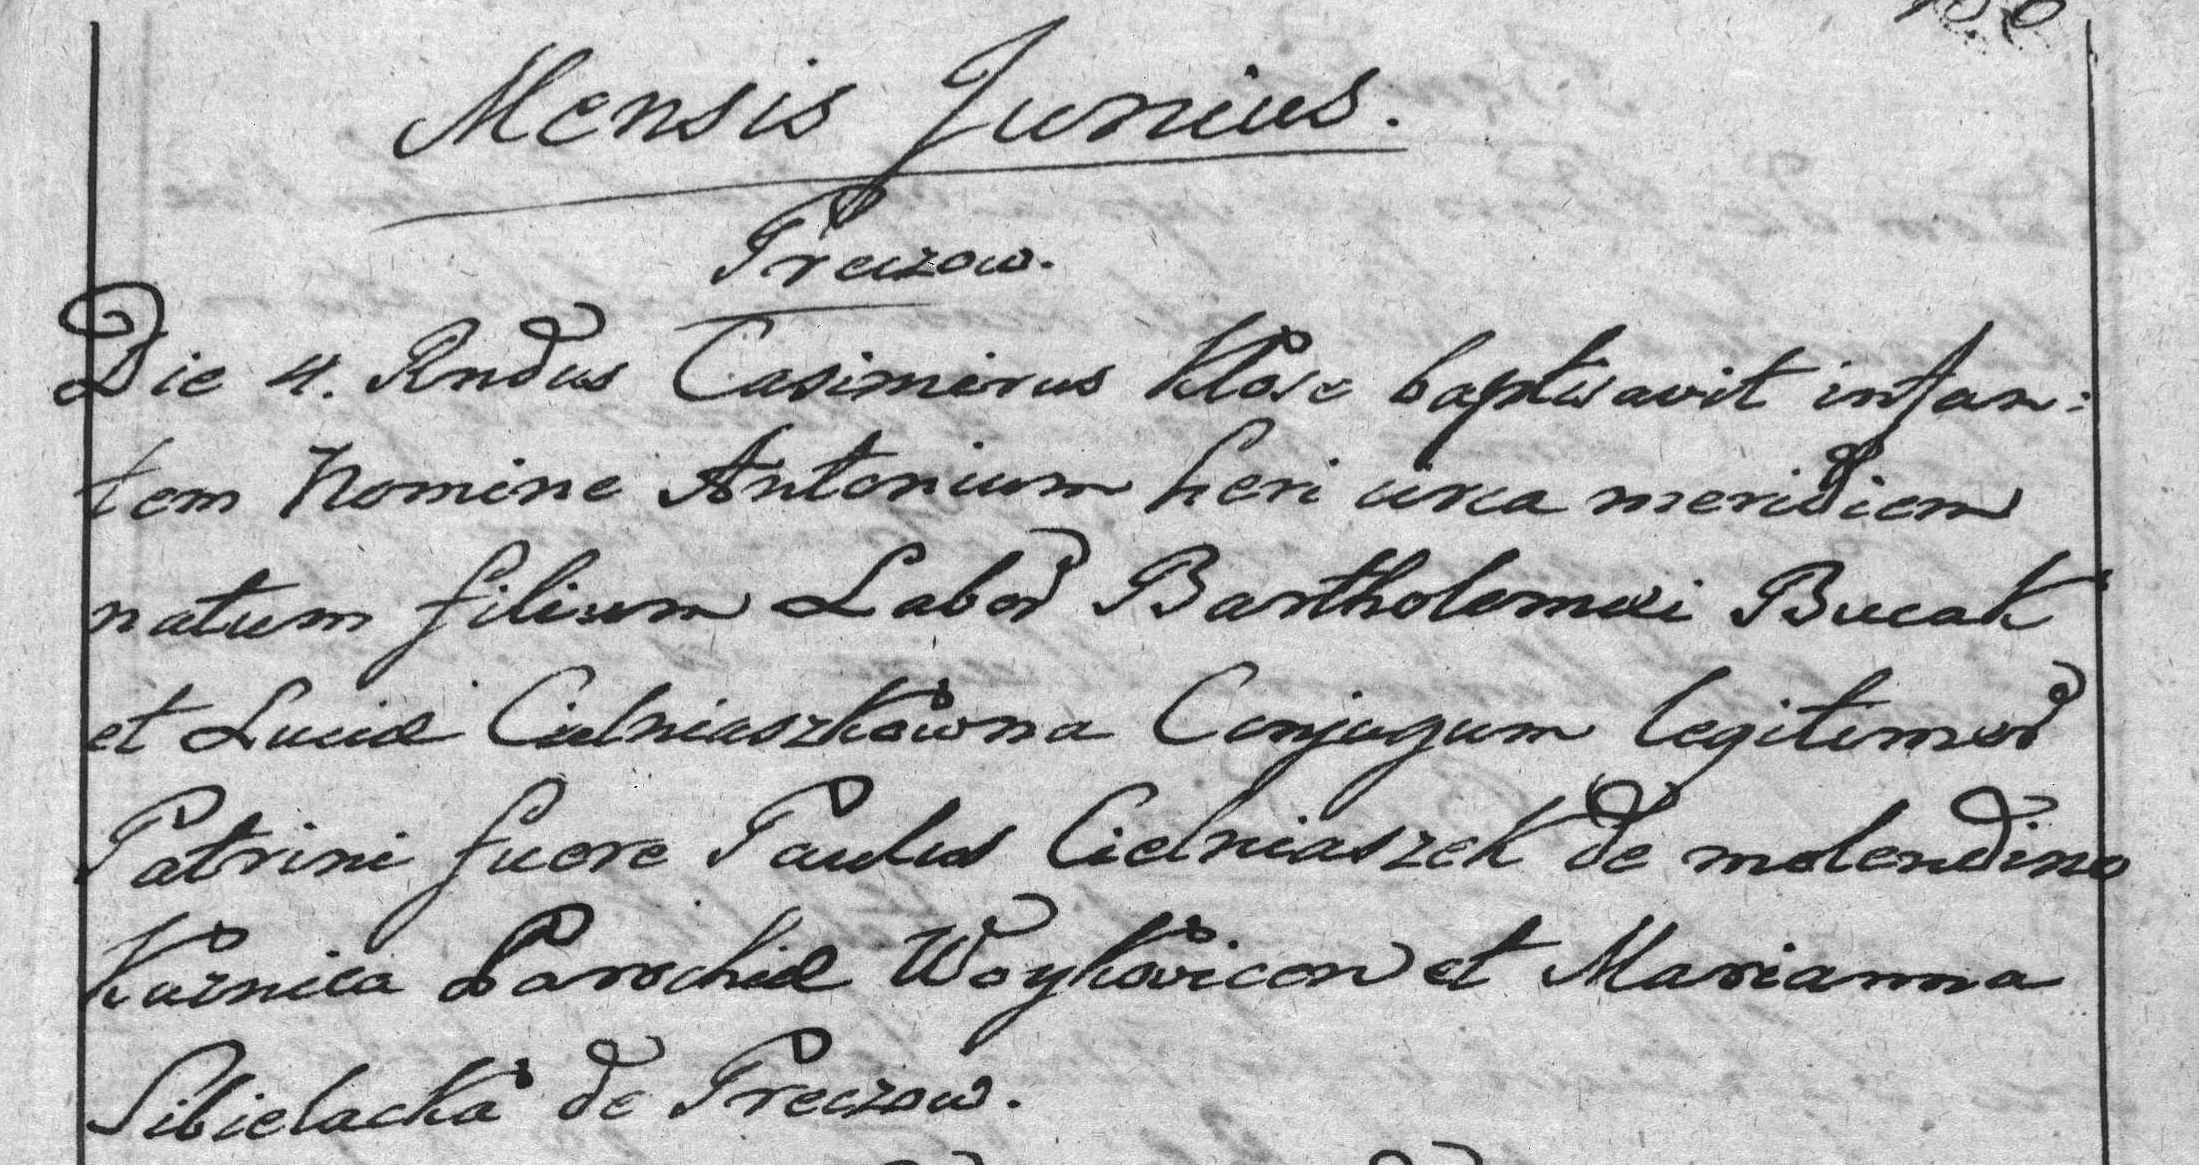 Mensis Junius.
Preczow.
Die 4. Rndus Casimirus Klose baptisavit infan:
tem Nomine Antonium heri circa meridiem
natum filium Labor Bartholomæi Bucak
et Luciæ Cielniaszkowna Conjugum legitimor
Patrini fuere Paulus Cielniaszek de molendino
Kuznica Parochiæ Woykovicen et Marianna
Sibielacka de Preczow.